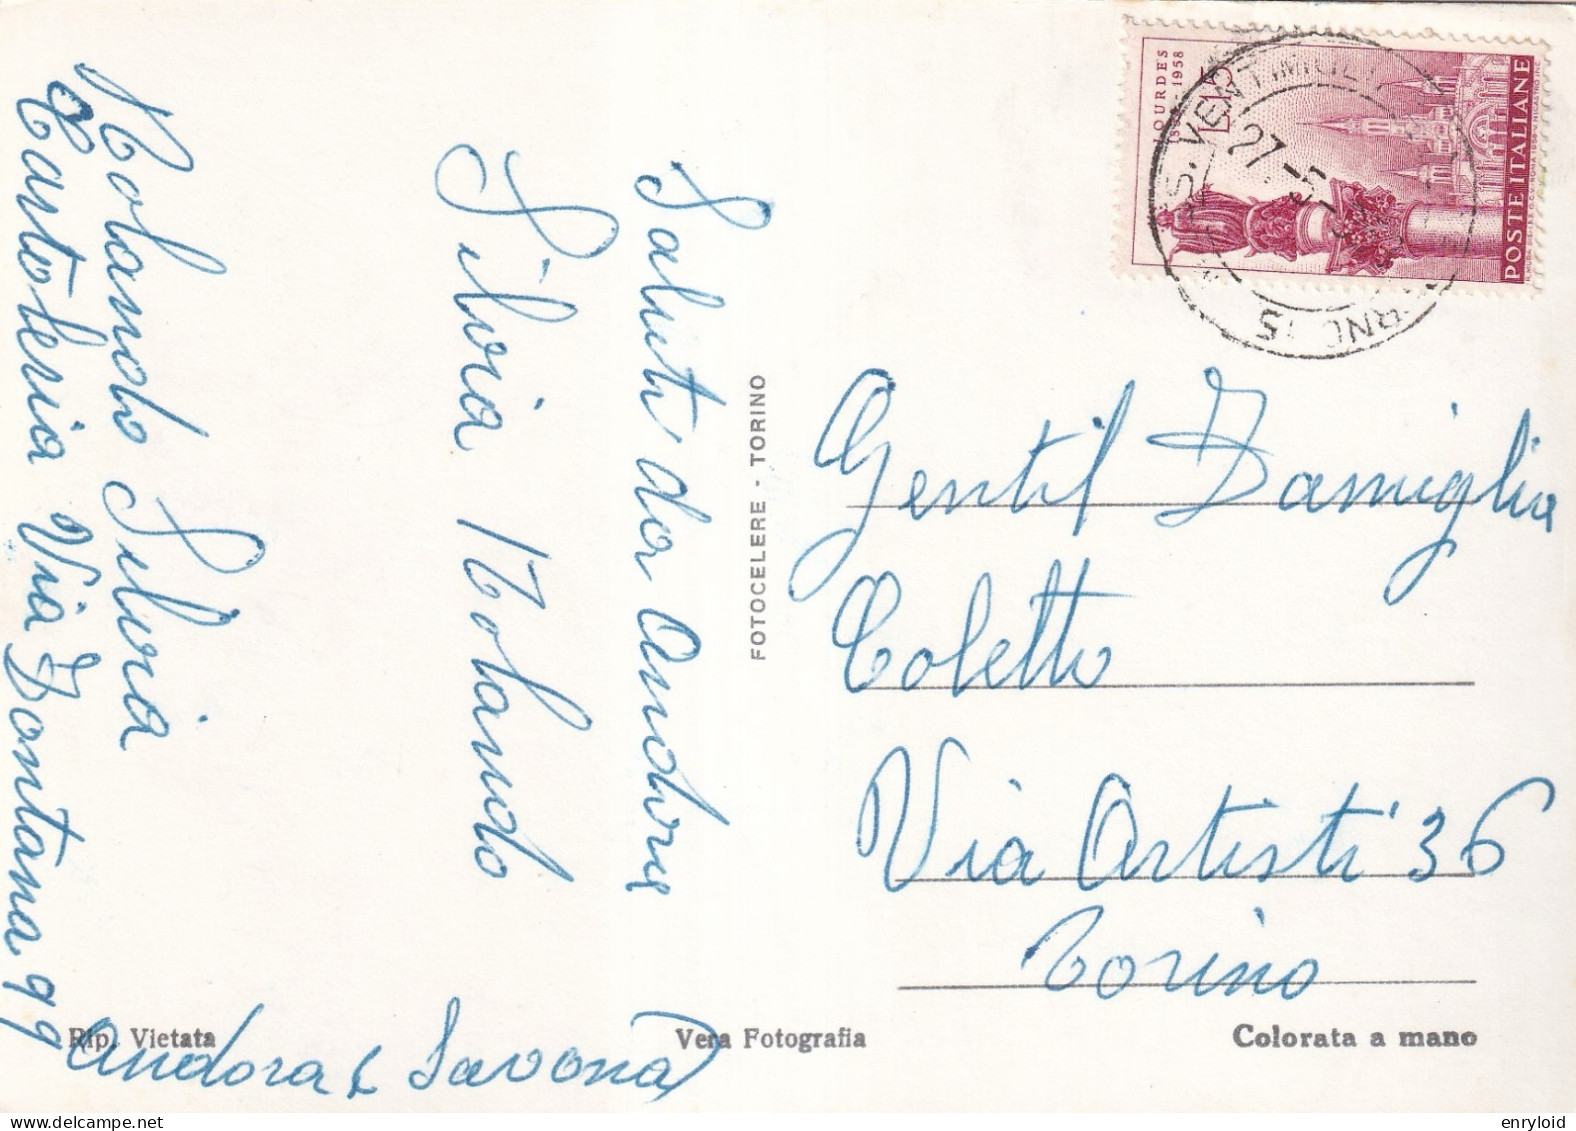 Rolando Silvia
Cartoleria Via Fontana 99
Andora (Savona)
Saluti da Andora
Silvia Rolando
FOTOCELERE - TORINO
Gentil Famiglia
Coletto
Via Artisti 36
Torino
Rip. Vietata
Vera Fotografia
Colorata a mano
LOURDES
1858 - 1958
L. 15
POSTE ITALIANE
27
enryloid